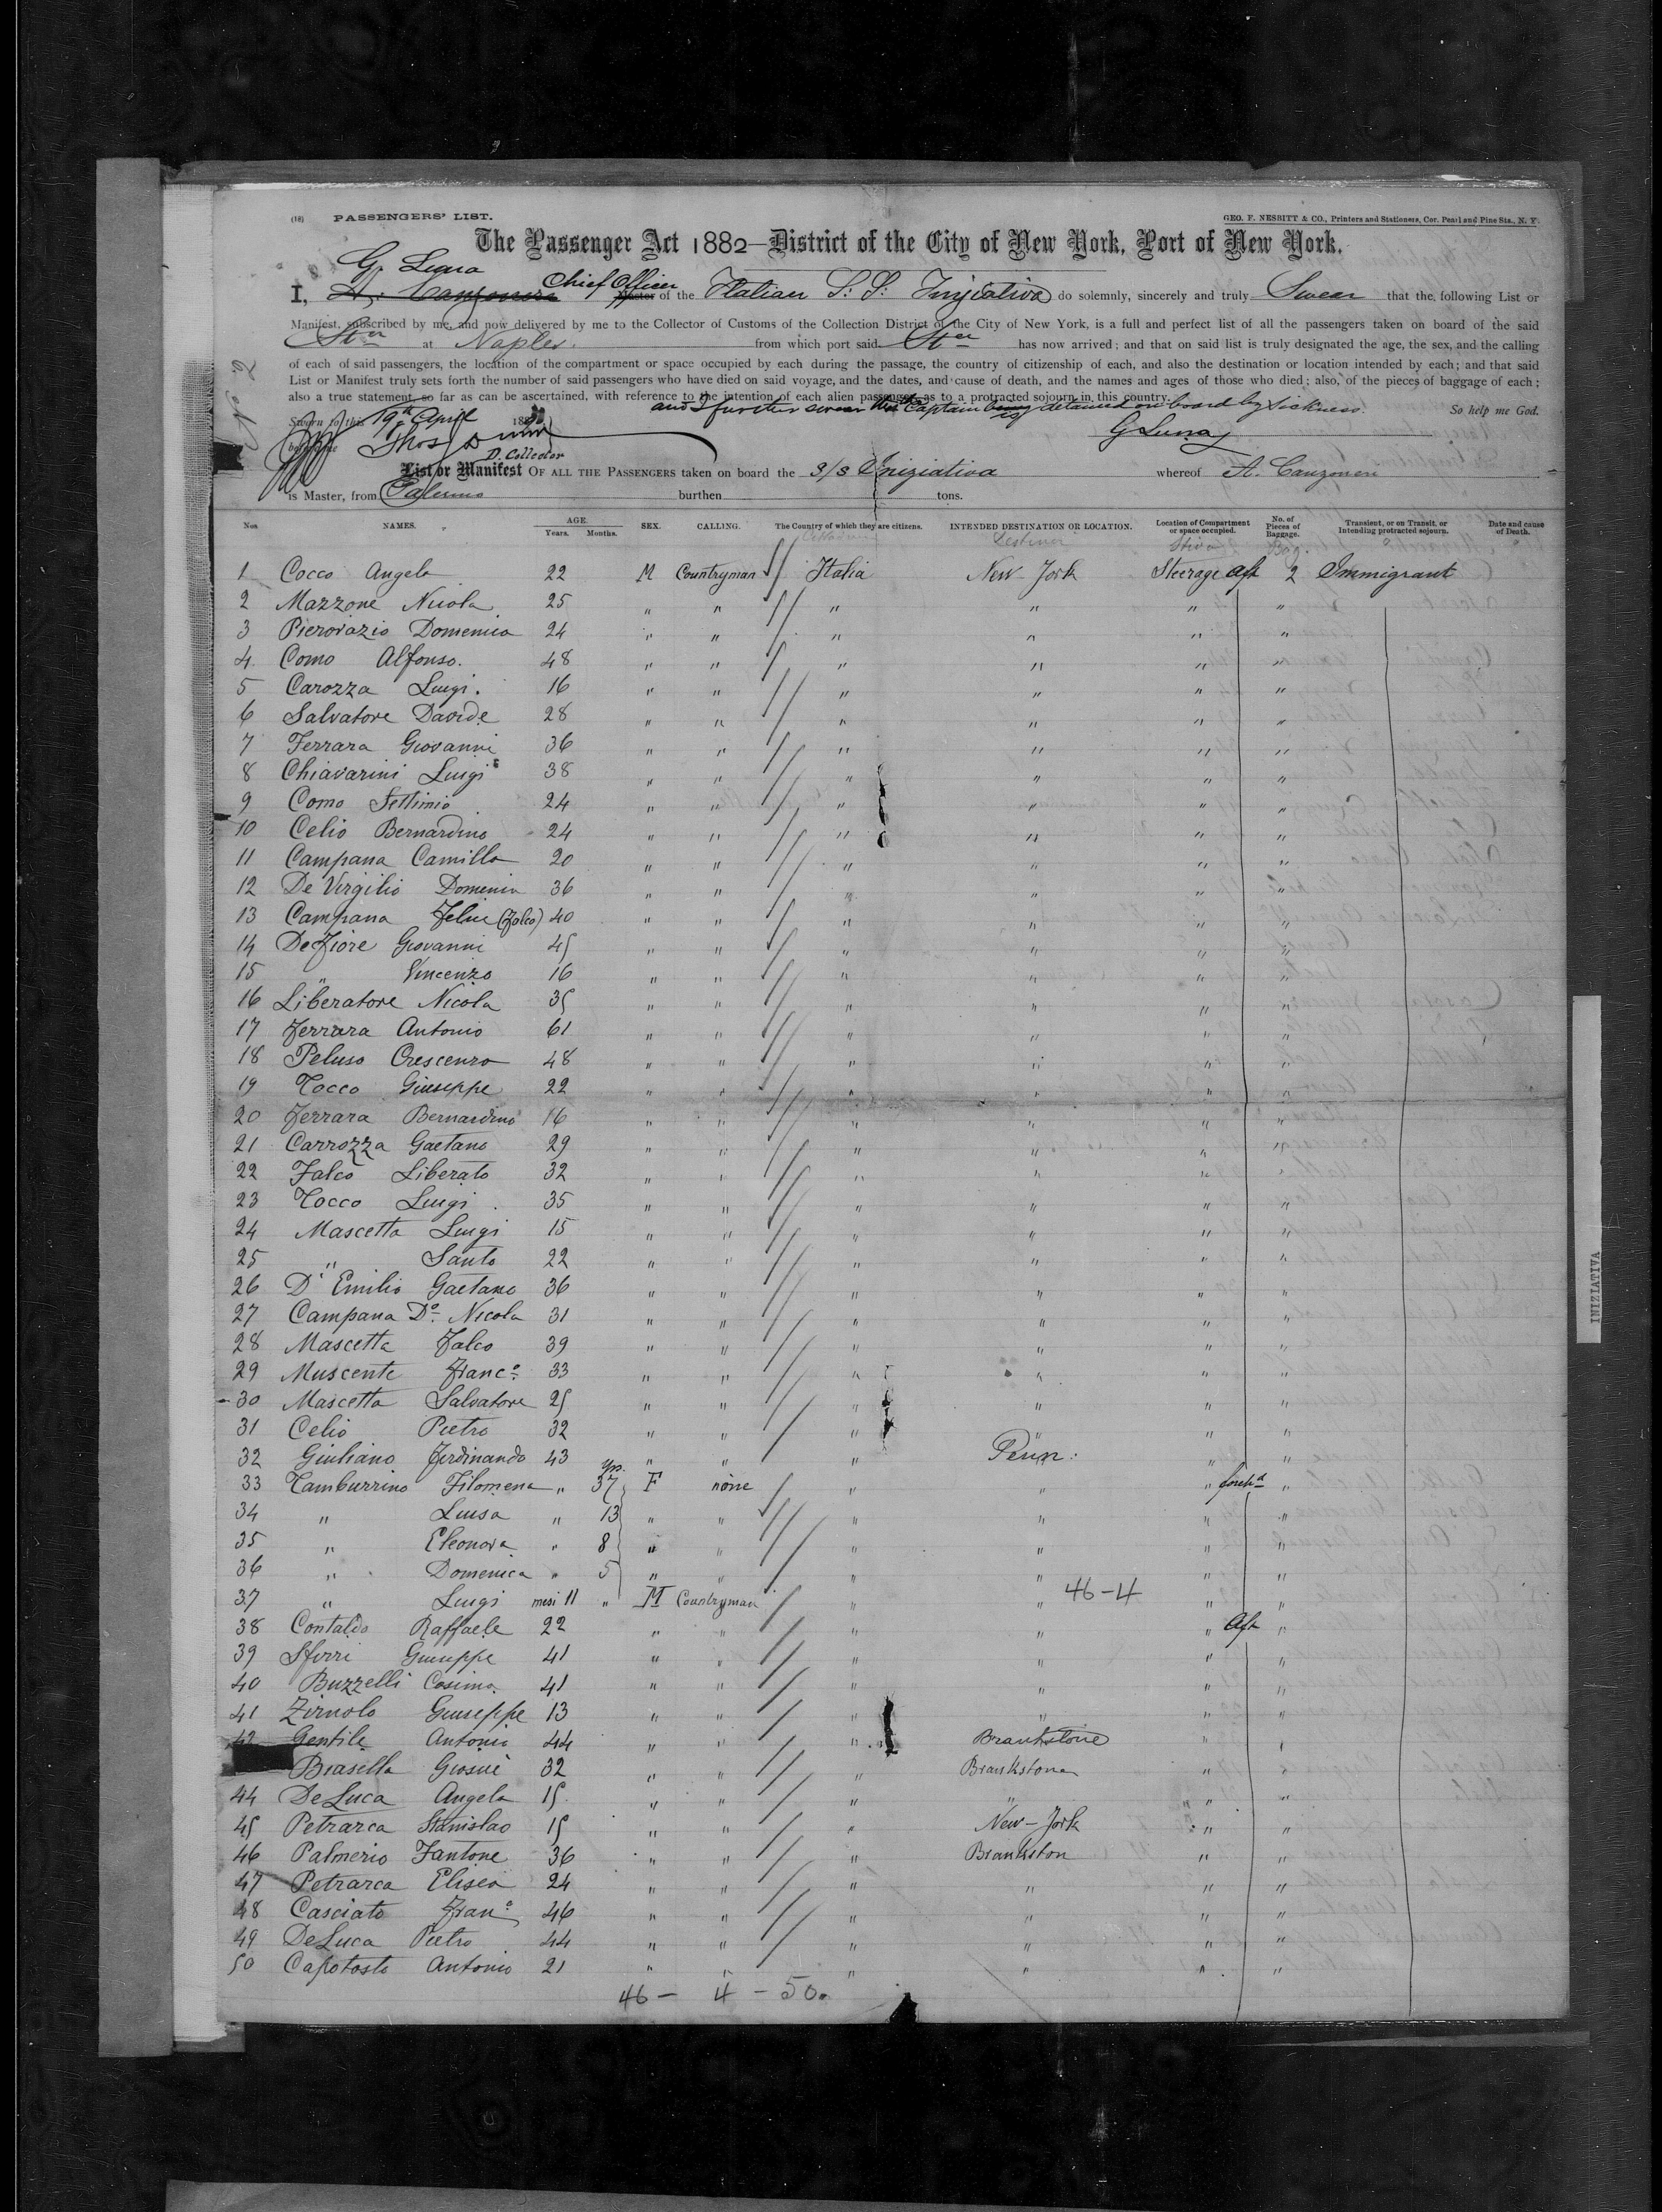 (18) PASSENGERS' LIST. GEO. F. NESBITT & CO., Printers and Stationers, Cor. Pearl and Pine Sts., N. Y.
The Passenger Act 1882—District of the City of New York, Port of New York.
G. Luna
I, A. Canzoneri Chief Officer Master of the Italian S: S: Iniziativa do solemnly, sincerely and truly Swear that the following List or
Manifest, subscribed by me, and now delivered by me to the Collector of Customs of the Collection District of the City of New York, is a full and perfect list of all the passengers taken on board of the said
Str at Naples. from which port said Str has now arrived; and that on said list is truly designated the age, the sex, and the calling
of each of said passengers, the location of the compartment or space occupied by each during the passage, the country of citizenship of each, and also the destination or location intended by each; and that said
List or Manifest truly sets forth the number of said passengers who have died on said voyage, and the dates, and cause of death, and the names and ages of those who died; also, of the pieces of baggage of each;
also a true statement, so far as can be ascertained, with reference to the intention of each alien passenger as to a protracted sojourn in this country.
and I further swear that Captain being is detained on board by sickness. So help me God.
Sworn to this 19th April 18
before me Thos Dunn G Luna
D. Collector
List or Manifest OF ALL THE PASSENGERS taken on board the S/S Iniziativa whereof A. Canzoneri
is Master, from Palermo burthen tons.
Nos. NAMES. AGE. Years. Months. SEX. CALLING. The Country of which they are citizens. INTENDED DESTINATION OR LOCATION. Location of Compartment or space occupied. No. of Pieces of Baggage. Transient, or on Transit, or Intending protracted sojourn. Date and cause of Death.
1 Cocco Angelo 22 M Countryman Italia New-York Steerage Aft 2 Immigrant
2 Mazzone Nicola 25 " " " " " "
3 Domenico 24 " " " " " "
4 Como Alfonso. 48 " " " " " "
5 Carozza Luigi. 16 " " " " " "
6 Salvatore Davide 28 " " " " " "
7 Ferrara Giovanni 36 " " " " " "
8 Chiavarini Luigi 38 " " " " " "
9 Como Settimio 24 " " " " " "
10 Celio Bernardino 24 " " " " " "
11 Campana Camillo 20 " " " " " "
12 De Virgilio Domenico 36 " " " " " "
13 Campana Felice (Falco) 40 " " " " " "
14 DeFiore Giovanni 45 " " " " " "
15 " Vincenzo 16 " " " " " "
16 Liberatore Nicola 35 " " " " " "
17 Ferrara Antonio 61 " " " " " "
18 Peluso Crescenzo 48 " " " " " "
19 Tocco Giuseppe 22 " " " " " "
20 Ferrara Bernardino 16 " " " " " "
21 Carrozza Gaetano 29 " " " " " "
22 Falco Liberato 32 " " " " " "
23 Tocco Luigi 35 " " " " " "
24 Mascetta Luigi 15 " " " " " "
25 " Santo 22 " " " " " "
26 D'Emilio Gaetano 36 " " " " " "
27 Campana Do Nicola 31 " " " " " "
28 Mascetta Falco 39 " " " " " "
29 Muscente Franco 33 " " " " " "
30 Mascetta Salvatore 25 " " " " " "
31 Celio Pietro 32 " " " " " "
32 Giuliano Ferdinando 43 " " " Penn: " "
33 Tamburrino Filomena " yrs. 37 F none " " " forwd "
34 " Luisa " 13 " " " " " "
35 " Eleonora " 8 " " " " " "
36 " Domenica " 5 " " " " " "
37 " Luigi mesi 11 " M Countryman " " 46-4 " "
38 Contaldo Raffaele 22 " " " " " Aft "
39 Sforri Giuseppe 41 " " " " " "
40 Buzzelli Cosimo 41 " " " " " "
41 Zirnolo Giuseppe 13 " " " " " "
42 Gentile Antonio 44 " " " Brankstone "
Brasella Giosuè 32 " " " Brankstone " "
44 DeLuca Angelo 15 " " " " " "
45 Petrarca Stanislao 15 " " " New-York " "
46 Palmerio Fantone 36 " " " Brankston " "
47 Petrarca Eliseo 24 " " " " " "
48 Casciato Franco 46 " " " " " "
49 DeLuca Pietro 44 " " " " " "
50 Capotosto Antonio 21 " " " " " "
46 - 4 - 50.
INIZIATIVA